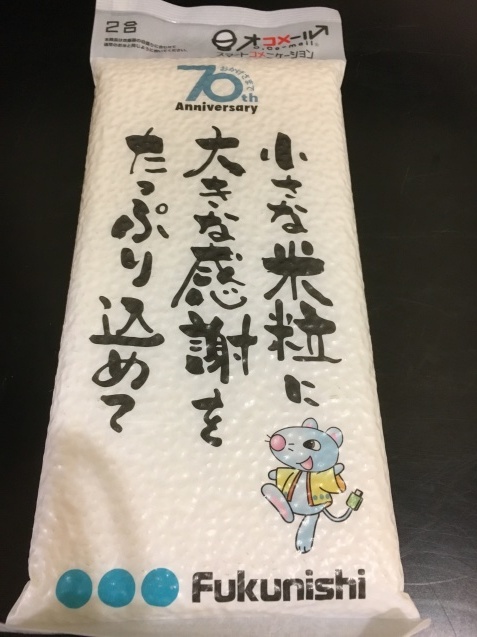 2合
オコメール
o.co-mail
スマートコメニケーション
おかげさまで
70th
Anniversary
小さな米粒に
大きな感謝を
たっぷり込めて
Fukunishi